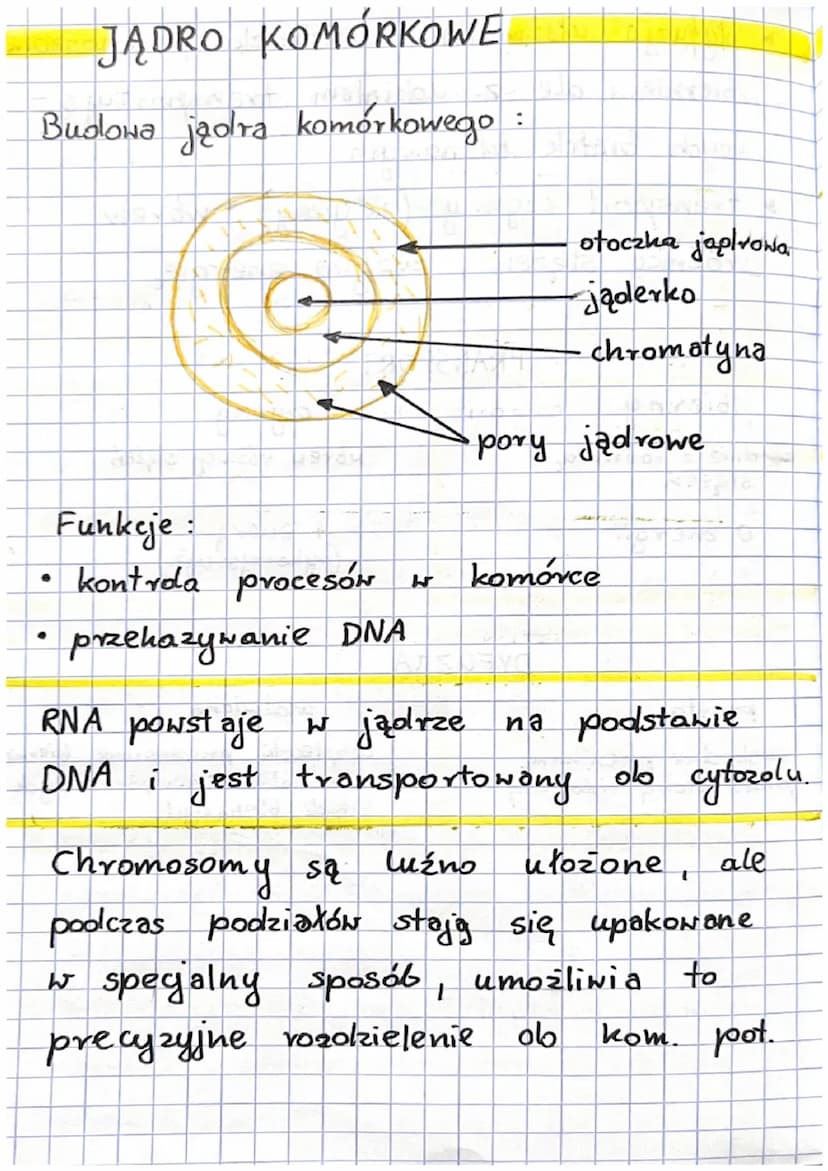 JĄDRO KOMÓRKOWE
Budowa jądra komórkowego :
otoczka jądrowa
jąderko
chromatyna
pory jądrowe
Funkcje :
• kontrola procesów w komórce
• przekazywanie DNA
RNA powstaje w jądrze na podstawie
DNA i jest transportowany do cytozolu.
Chromosomy są luźno ułożone, ale
podczas podziałów stają się upakowane
w specjalny sposób, umożliwia to
precyzyjne rozdzielenie do kom. pot.